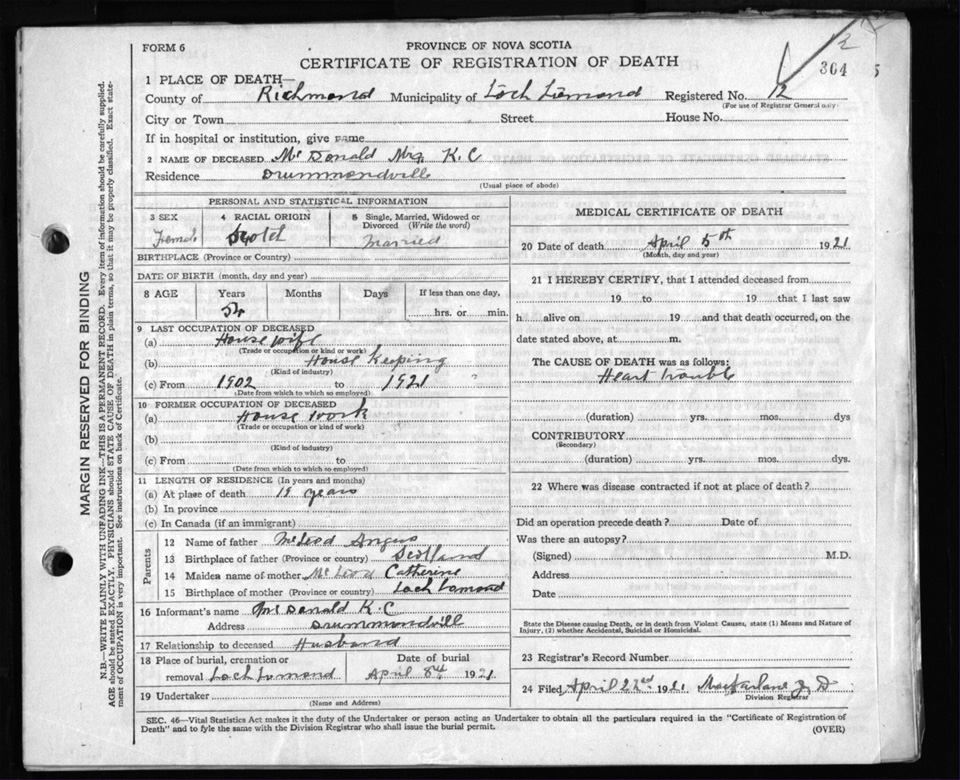 FORM 6
PROVINCE OF NOVA SCOTIA
CERTIFICATE OF REGISTRATION OF DEATH
364
5
1 PLACE OF DEATH—
County of Richmond Municipality of Loch Lomond Registered No. 12
(For use of Registrar General only)
City or Town Street House No.
If in hospital or institution, give name
2 NAME OF DECEASED Mc Donald Mrs. K. C
Residence Drummondville
(Usual place of abode)
PERSONAL AND STATISTICAL INFORMATION
3 SEX 4 RACIAL ORIGIN 5 Single, Married, Widowed or Divorced (Write the word)
Female Scotch Married
BIRTHPLACE (Province or Country)
DATE OF BIRTH (month, day and year)
8 AGE Years Months Days If less than one day,
hrs. or min.
9 LAST OCCUPATION OF DECEASED
(a) House wife
(Trade or occupation or kind of work)
(b) House keeping
(Kind of industry)
(c) From 1902 to 1921
(Date from which to which so employed)
10 FORMER OCCUPATION OF DECEASED
(a) House work
(Trade or occupation or kind of work)
(b)
(Kind of industry)
(c) From to
(Date from which to which so employed)
11 LENGTH OF RESIDENCE (In years and months)
(a) At place of death 19 years
(b) In province
(c) In Canada (if an immigrant)
Parents
12 Name of father McLeod Angus
13 Birthplace of father (Province or country) Scotland
14 Maiden name of mother McLeod Catherine
15 Birthplace of mother (Province or country) Loch Lomond
16 Informant's name McDonald K. C
Address Drummondvill
17 Relationship to deceased Husband
18 Place of burial, cremation or removal Loch Lomond
Date of burial April 8th 1921
19 Undertaker
(Name and Address)
MEDICAL CERTIFICATE OF DEATH
20 Date of death April 5th 1921
(Month, day and year)
21 I HEREBY CERTIFY, that I attended deceased from
19 to 19 that I last saw
h alive on 19 and that death occurred, on the
date stated above, at m.
The CAUSE OF DEATH was as follows:
Heart trouble
(duration) yrs. mos. dys
CONTRIBUTORY
(Secondary)
(duration) yrs. mos. dys.
22 Where was disease contracted if not at place of death?
Did an operation precede death? Date of
Was there an autopsy?
(Signed) M.D.
Address
Date
State the Disease causing Death, or in death from Violent Causes, state (1) Means and Nature of
Injury, (2) whether Accidental, Suicidal or Homicidal.
23 Registrar's Record Number
24 Filed April 22nd 1921 MacFarlane J. D
Division Registrar
SEC. 46—Vital Statistics Act makes it the duty of the Undertaker or person acting as Undertaker to obtain all the particulars required in the "Certificate of Registration of
Death" and to fyle the same with the Division Registrar who shall issue the burial permit.
(OVER)
MARGIN RESERVED FOR BINDING
N.B.—WRITE PLAINLY WITH UNFADING INK—THIS IS A PERMANENT RECORD. Every item of information should be carefully supplied.
AGE should be stated EXACTLY. PHYSICIANS should STATE CAUSE OF DEATH in plain terms, so that it may be properly classified. Exact state-
ment of OCCUPATION is very important. See instructions on back of Certificate.